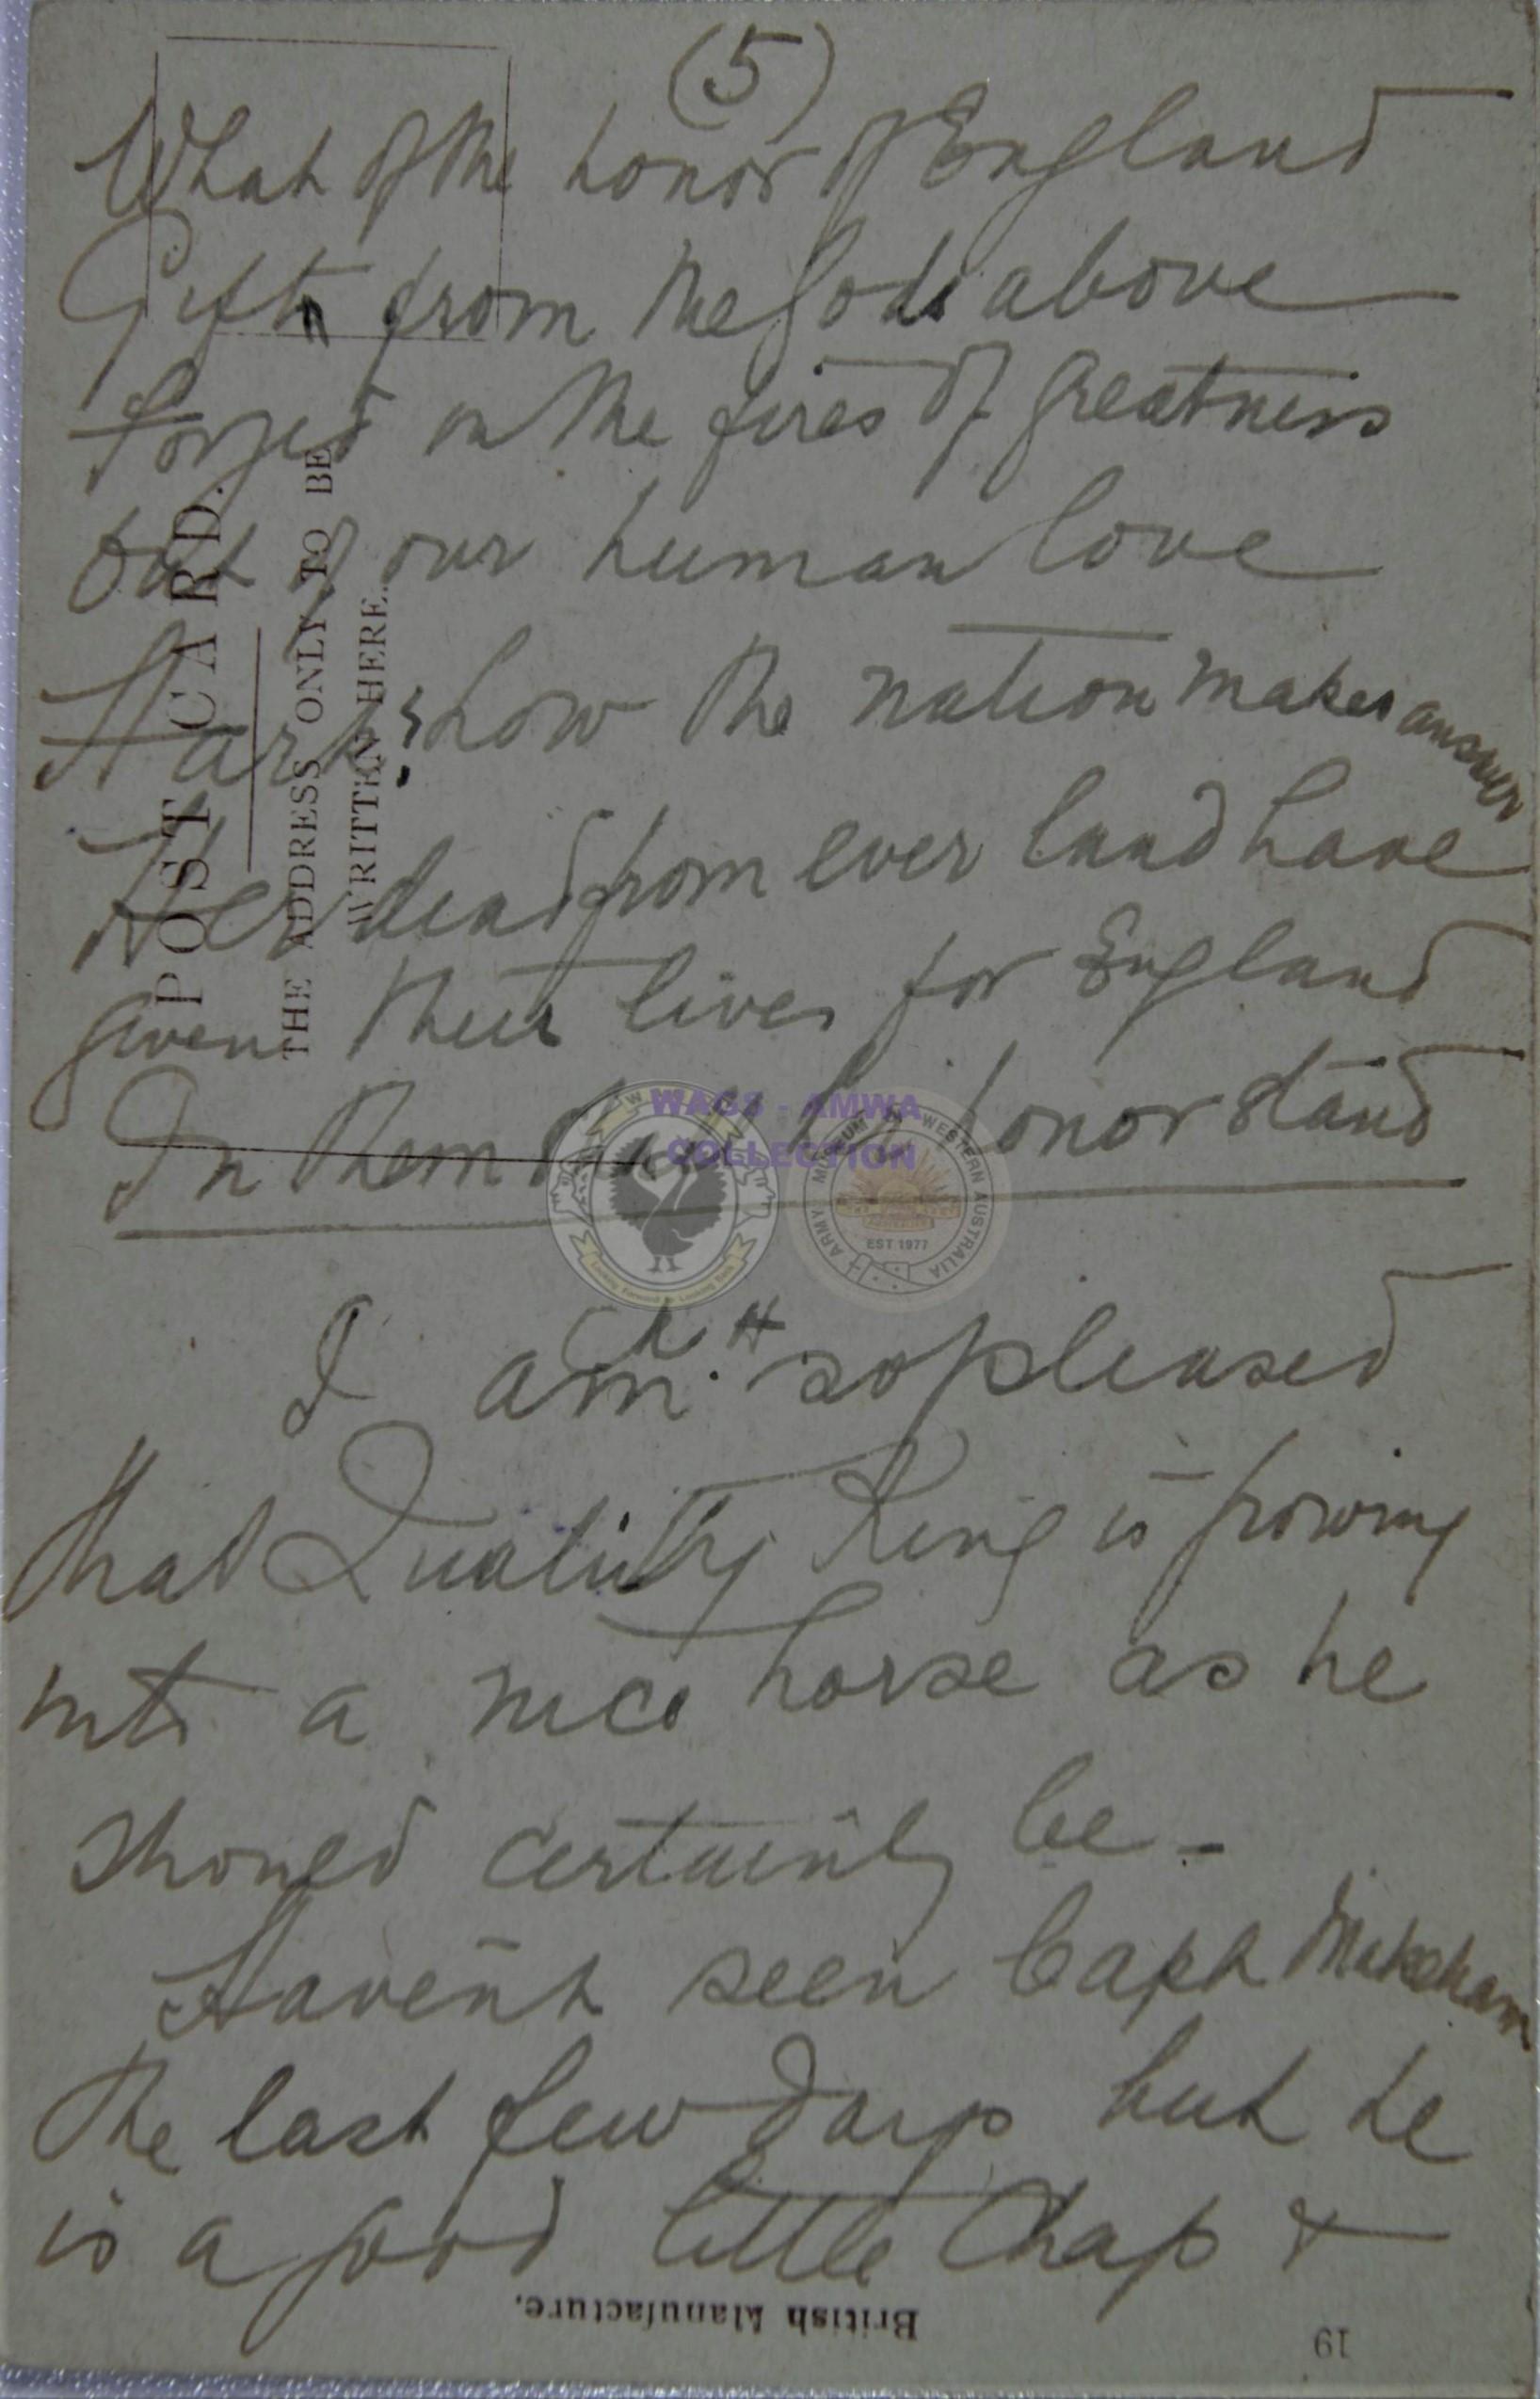 (5)
What of the honor of England
Gift from the Gods above
Forged in the fires of greatness
Out of our human love
Hark! how the nation makes answer
Her dead from ever land have
given their lives for England
In them her honor stand
I am so pleased
that Quality King is growing
into a nice horse as he
should certainly be -
Haven't seen Capt Makeham
the last few days but he
is a good little Chap &
POST CARD.
THE ADDRESS ONLY TO BE
WRITTEN HERE.
British Manufacture.
19
WAGS - AMWA
COLLECTION
ARMY MUSEUM OF WESTERN AUSTRALIA
EST 1977